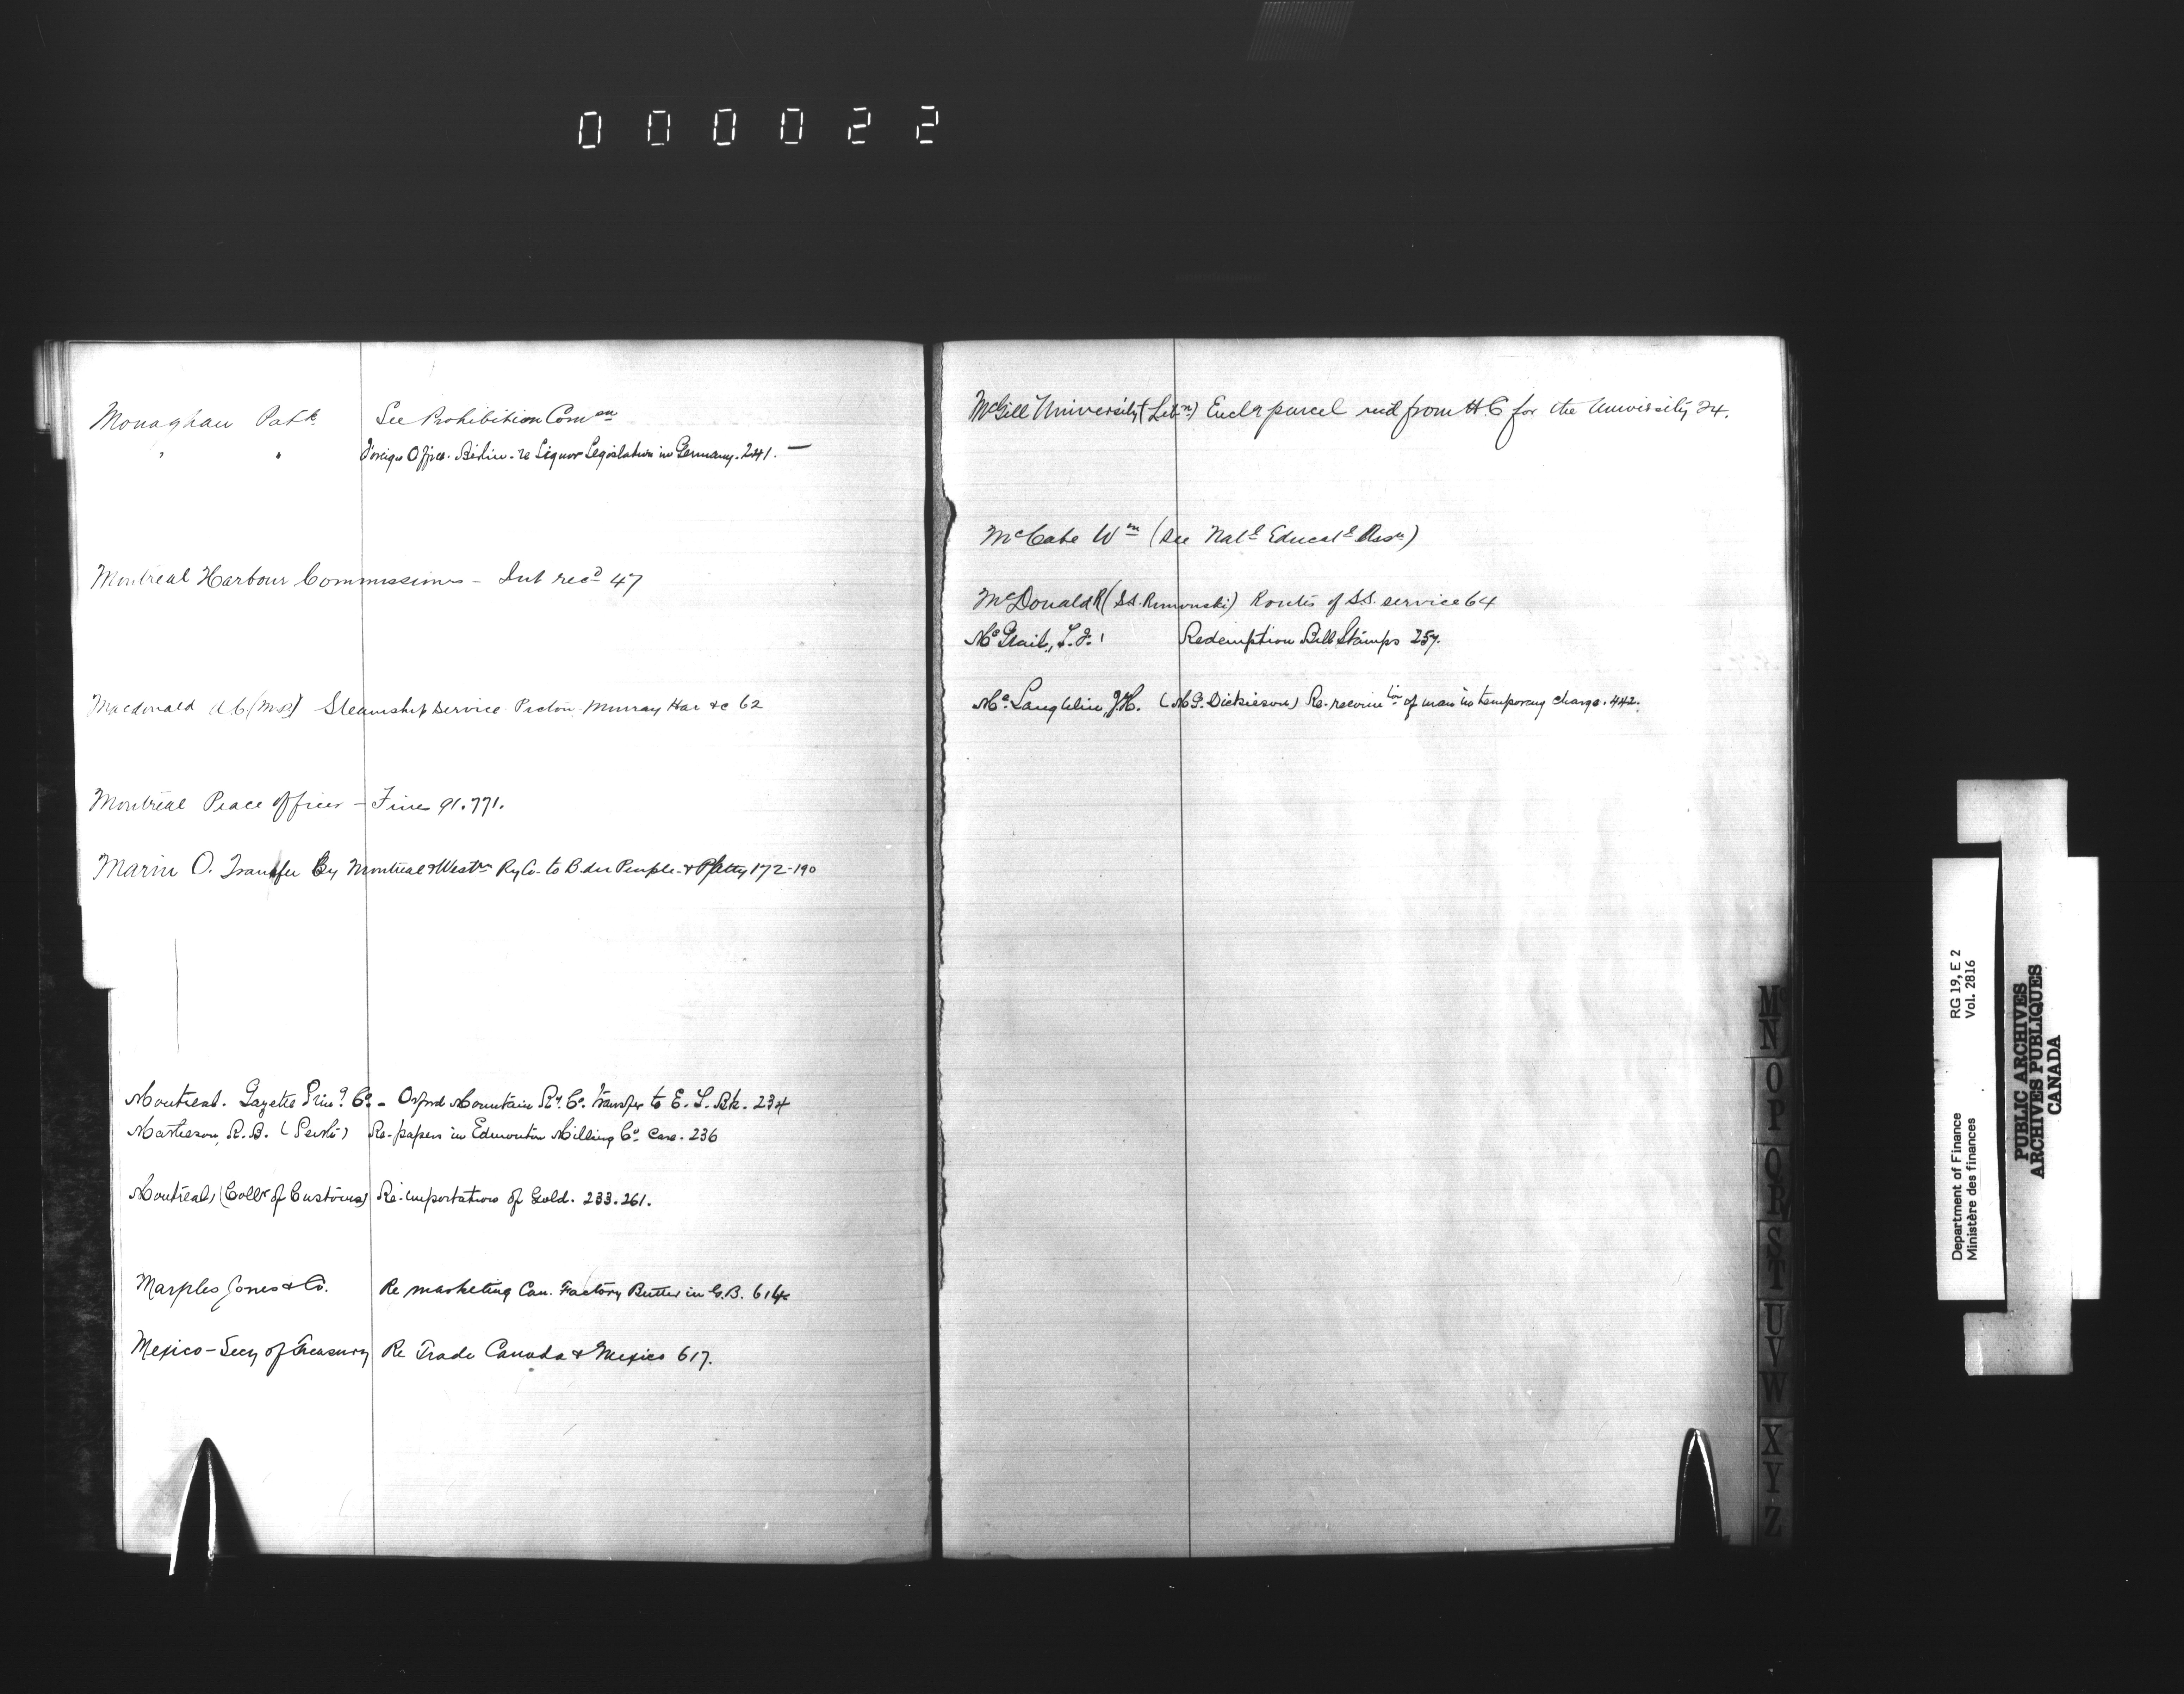 000022
Monaghan Patk See Prohibition Comon
" " Foreign Office. Berlin. re Liquor Legislation in Germany. 241. —
Montreal Harbour Commissioners - Int recd 47
Macdonald A.C. (M.P.) Steamship Service Pictou Murray Har &c 62
Montreal Peace Officer - Fines 91. 771.
Marin O. Transfer By Montreal & Westn Ry Co. to B. du Peuple & 172-190
Montreal. Gazette Prin. Co. - Orford Mountain Ry. Co. Transfer to E. T. Bk. 234
Matheson, R.B. (Perth) Re-papers in Edmonton Milling Co. Case. 236
Montreal, (Collr of Customs) Re-importation of Gold. 233. 261.
Marples Jones & Co. Re marketing Can. Factory Butter in G.B. 614
Mexico - Secy of Treasury Re Trade Canada & Mexico 617.
McGill University (Libn) Encl parcel recd from H.C for the University 24.
McCabe Wm (See Natl Educatl Assn)
McDonald R (S.S. Rimouski) Routes of S.S. service 64
Redemption Bill Stamps 257.
McLaughlin, J.H. (M.G. Dickieson) Re. of man in temporary charge. 442.
M
N
O
P
Q
R
S
T
U
V
W
X
Y
Z
RG 19, E 2
Vol. 2816
Department of Finance
Ministère des finances
PUBLIC ARCHIVES
ARCHIVES PUBLIQUES
CANADA